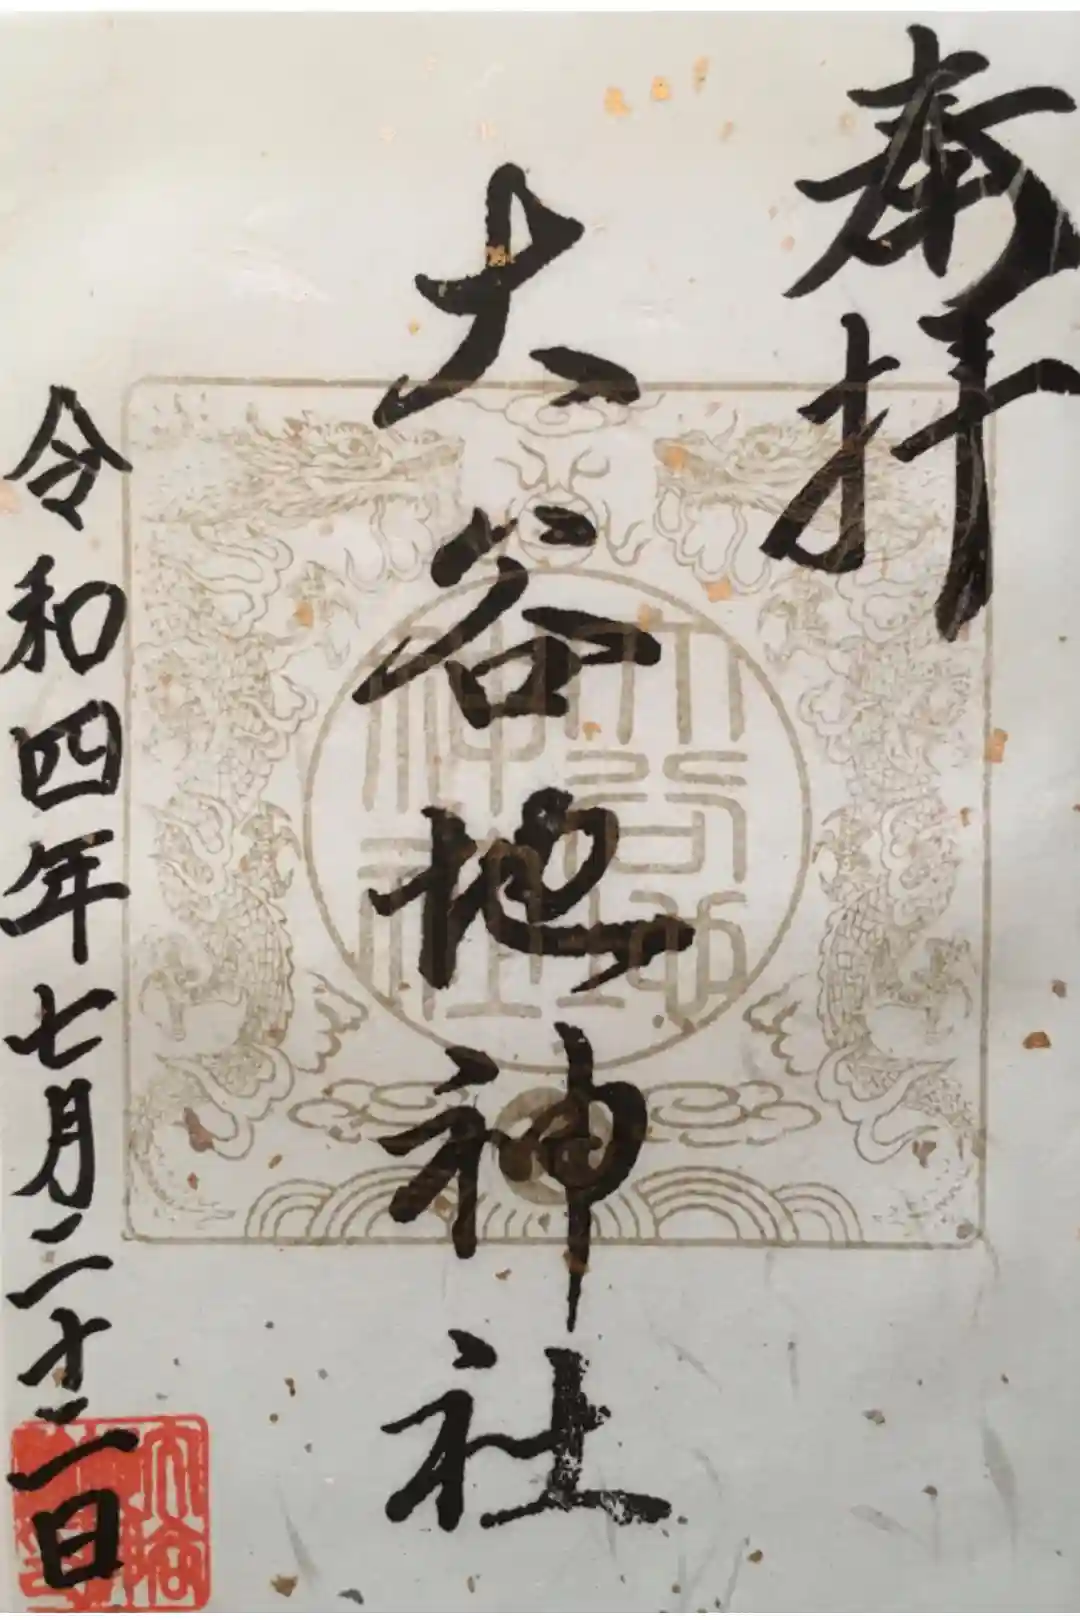 奉拝
大谷地神社
大谷地
神社
令和四年七月二十二日